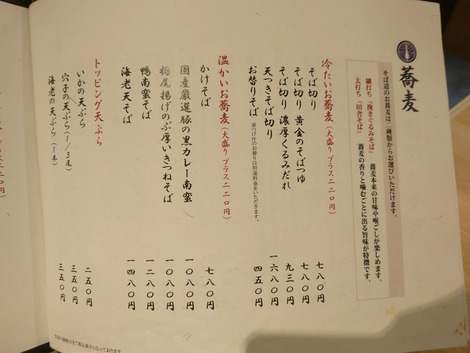 蕎麦
そば道のお蕎麦は二種類からお選びいただけます。
細打ち『挽きぐるみそば』 蕎麦本来の甘味や喉ごしが楽しめます。
太打ち『田舎そば』 蕎麦の香りと噛むごとに出る旨味が特徴です。
冷たいお蕎麦(大盛り プラス二二〇円)
そば切り 七八〇円
そば切り 黄金のそばつゆ 七八〇円
そば切り 濃厚くるみだれ 九三〇円
天つきそば切り 一六八〇円
お替りそば 四五〇円
温かいお蕎麦(大盛り プラス二二〇円)
かけそば 七八〇円
国産厳選豚の黒カレー南蛮 一〇八〇円
栃尾揚げのぶ厚いきつねそば 一〇八〇円
鴨南蛮そば 一二八〇円
海老天そば 一四八〇円
トッピング天ぷら
いかの天ぷら 二五〇円
穴子の天ぷら 三五〇円
海老の天ぷら(1本) 三五〇円